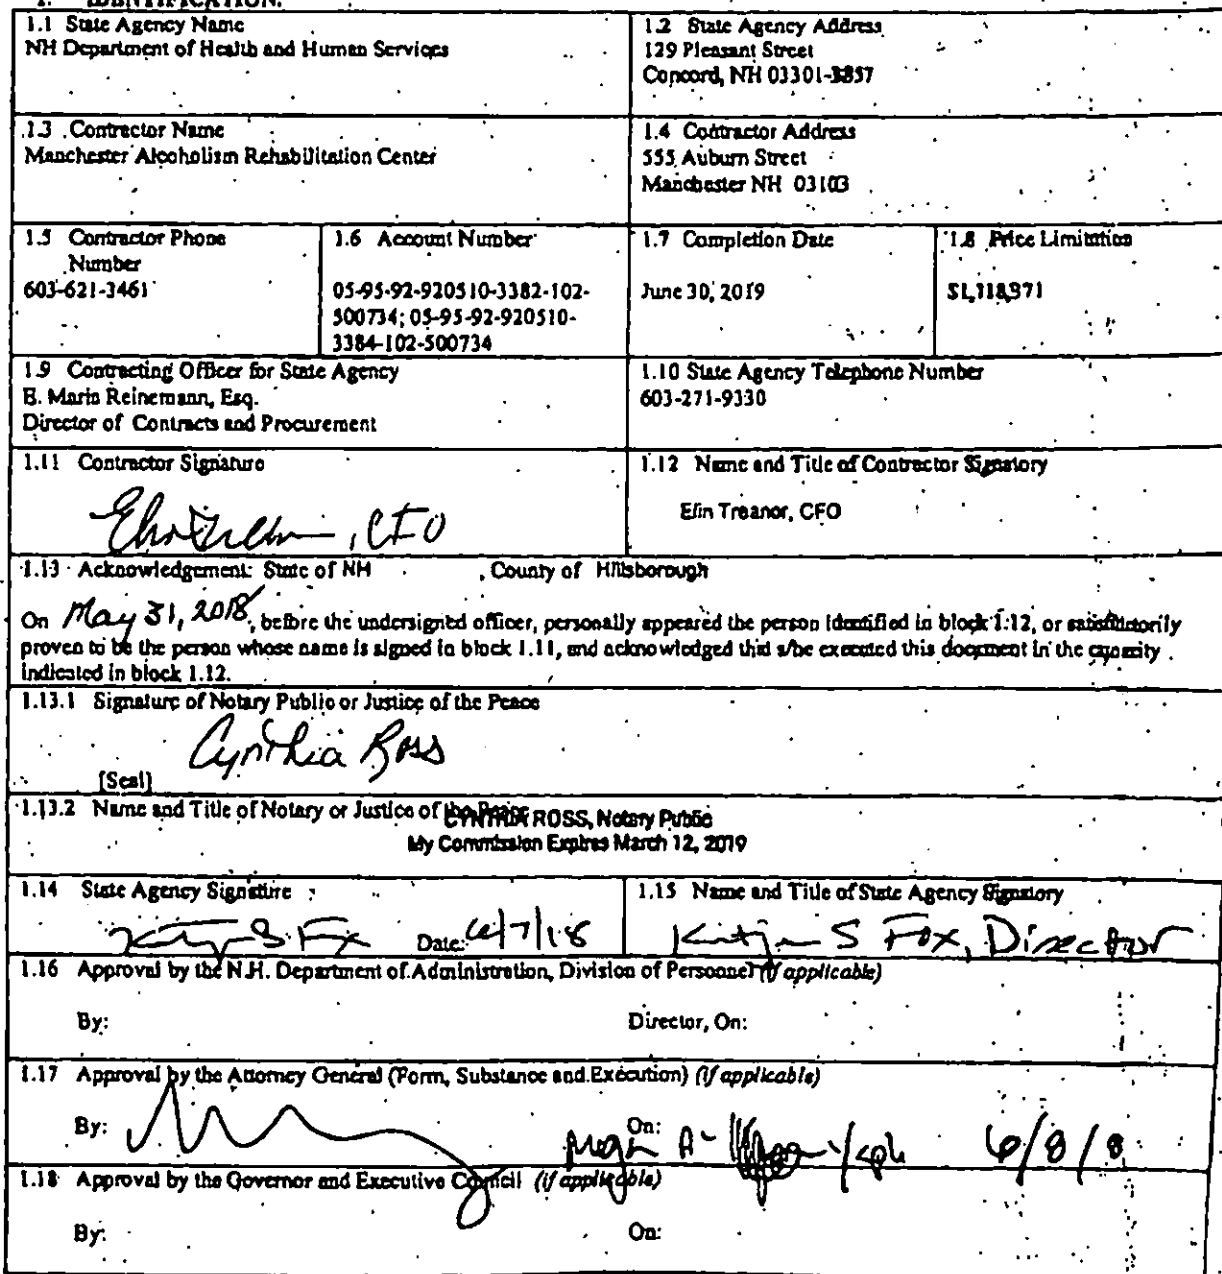 1. IDENTIFICATION.
1.1 State Agency Name
NH Department of Health and Human Services
1.2 State Agency Address
129 Pleasant Street
Concord, NH 03301-3857
1.3 Contractor Name
Manchester Alcoholism Rehabilitation Center
1.4 Contractor Address
555 Auburn Street
Manchester NH 03103
1.5 Contractor Phone
Number
603-621-3461
1.6 Account Number
05-95-92-920510-3382-102-
500734; 05-95-92-920510-
3384-102-500734
1.7 Completion Date
June 30, 2019
1.8 Price Limitation
$1,118,371
1.9 Contracting Officer for State Agency
E. Maria Reinemann, Esq.
Director of Contracts and Procurement
1.10 State Agency Telephone Number
603-271-9330
1.11 Contractor Signature
, CFO
1.12 Name and Title of Contractor Signatory
Elin Treanor, CFO
1.13 Acknowledgement: State of NH , County of Hillsborough
On May 31, 2018, before the undersigned officer, personally appeared the person identified in block 1.12, or satisfactorily
proven to be the person whose name is signed in block 1.11, and acknowledged that s/he executed this document in the capacity
indicated in block 1.12.
1.13.1 Signature of Notary Public or Justice of the Peace
Cynthia Ross
[Seal]
1.13.2 Name and Title of Notary or Justice of the Peace
CYNTHIA ROSS, Notary Public
My Commission Expires March 12, 2019
1.14 State Agency Signature
Date: 6/7/18
1.15 Name and Title of State Agency Signatory
S Fox, Director
1.16 Approval by the N.H. Department of Administration, Division of Personnel (if applicable)
By: Director, On:
1.17 Approval by the Attorney General (Form, Substance and Execution) (if applicable)
By: On: 6/8/8
1.18 Approval by the Governor and Executive Council (if applicable)
By: On: